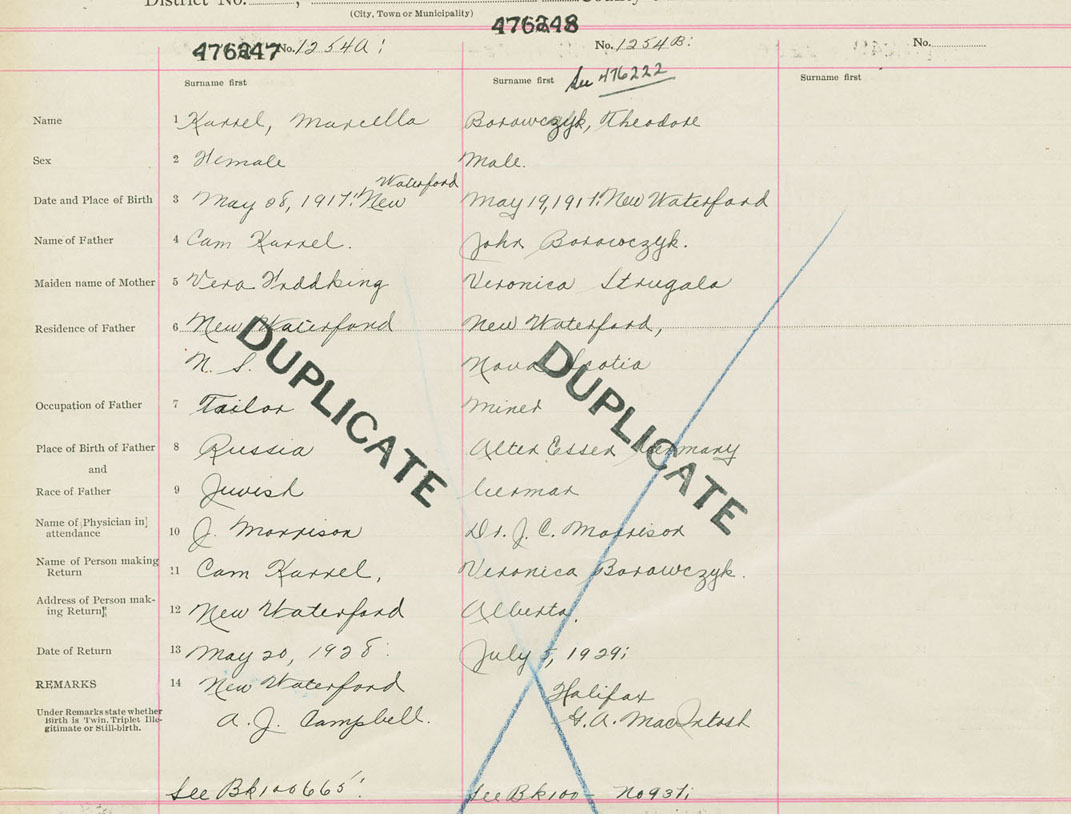 District No.
(City, Town or Municipality)
476247 No. 1254A:
476248 No. 1254B:
No.
Surname first
Surname first See 476222
Surname first
Name 1 Karrel, Marcella Borowczyk, Theodore
Sex 2 Female Male.
Date and Place of Birth 3 May 08, 1917: New Waterford May 19, 1917: New Waterford
Name of Father 4 Cam Karrel. John Borowczyk.
Maiden name of Mother 5 Vera Veronica Strugala
Residence of Father 6 New Waterford New Waterford,
N. S. Nova Scotia
DUPLICATE DUPLICATE
Occupation of Father 7 Tailor Miner
Place of Birth of Father 8 Russia Alter Essen Germany
and
Race of Father 9 Jewish German
Name of [Physician in]
attendance 10 J. Morrison Dr. J. C. Morrison
Name of Person making
Return 11 Cam Karrel, Veronica Borowczyk.
Address of Person mak-
ing Return 12 New Waterford Alberta.
Date of Return 13 May 20, 1928: July 5, 1929:
REMARKS 14 New Waterford Halifax
Under Remarks state whether
Birth is Twin, Triplet Ille-
gitimate or Still-birth.
A. J. Campbell. G. A. MacIntosh
See Bk 100 665: See Bk 100 - No 931: